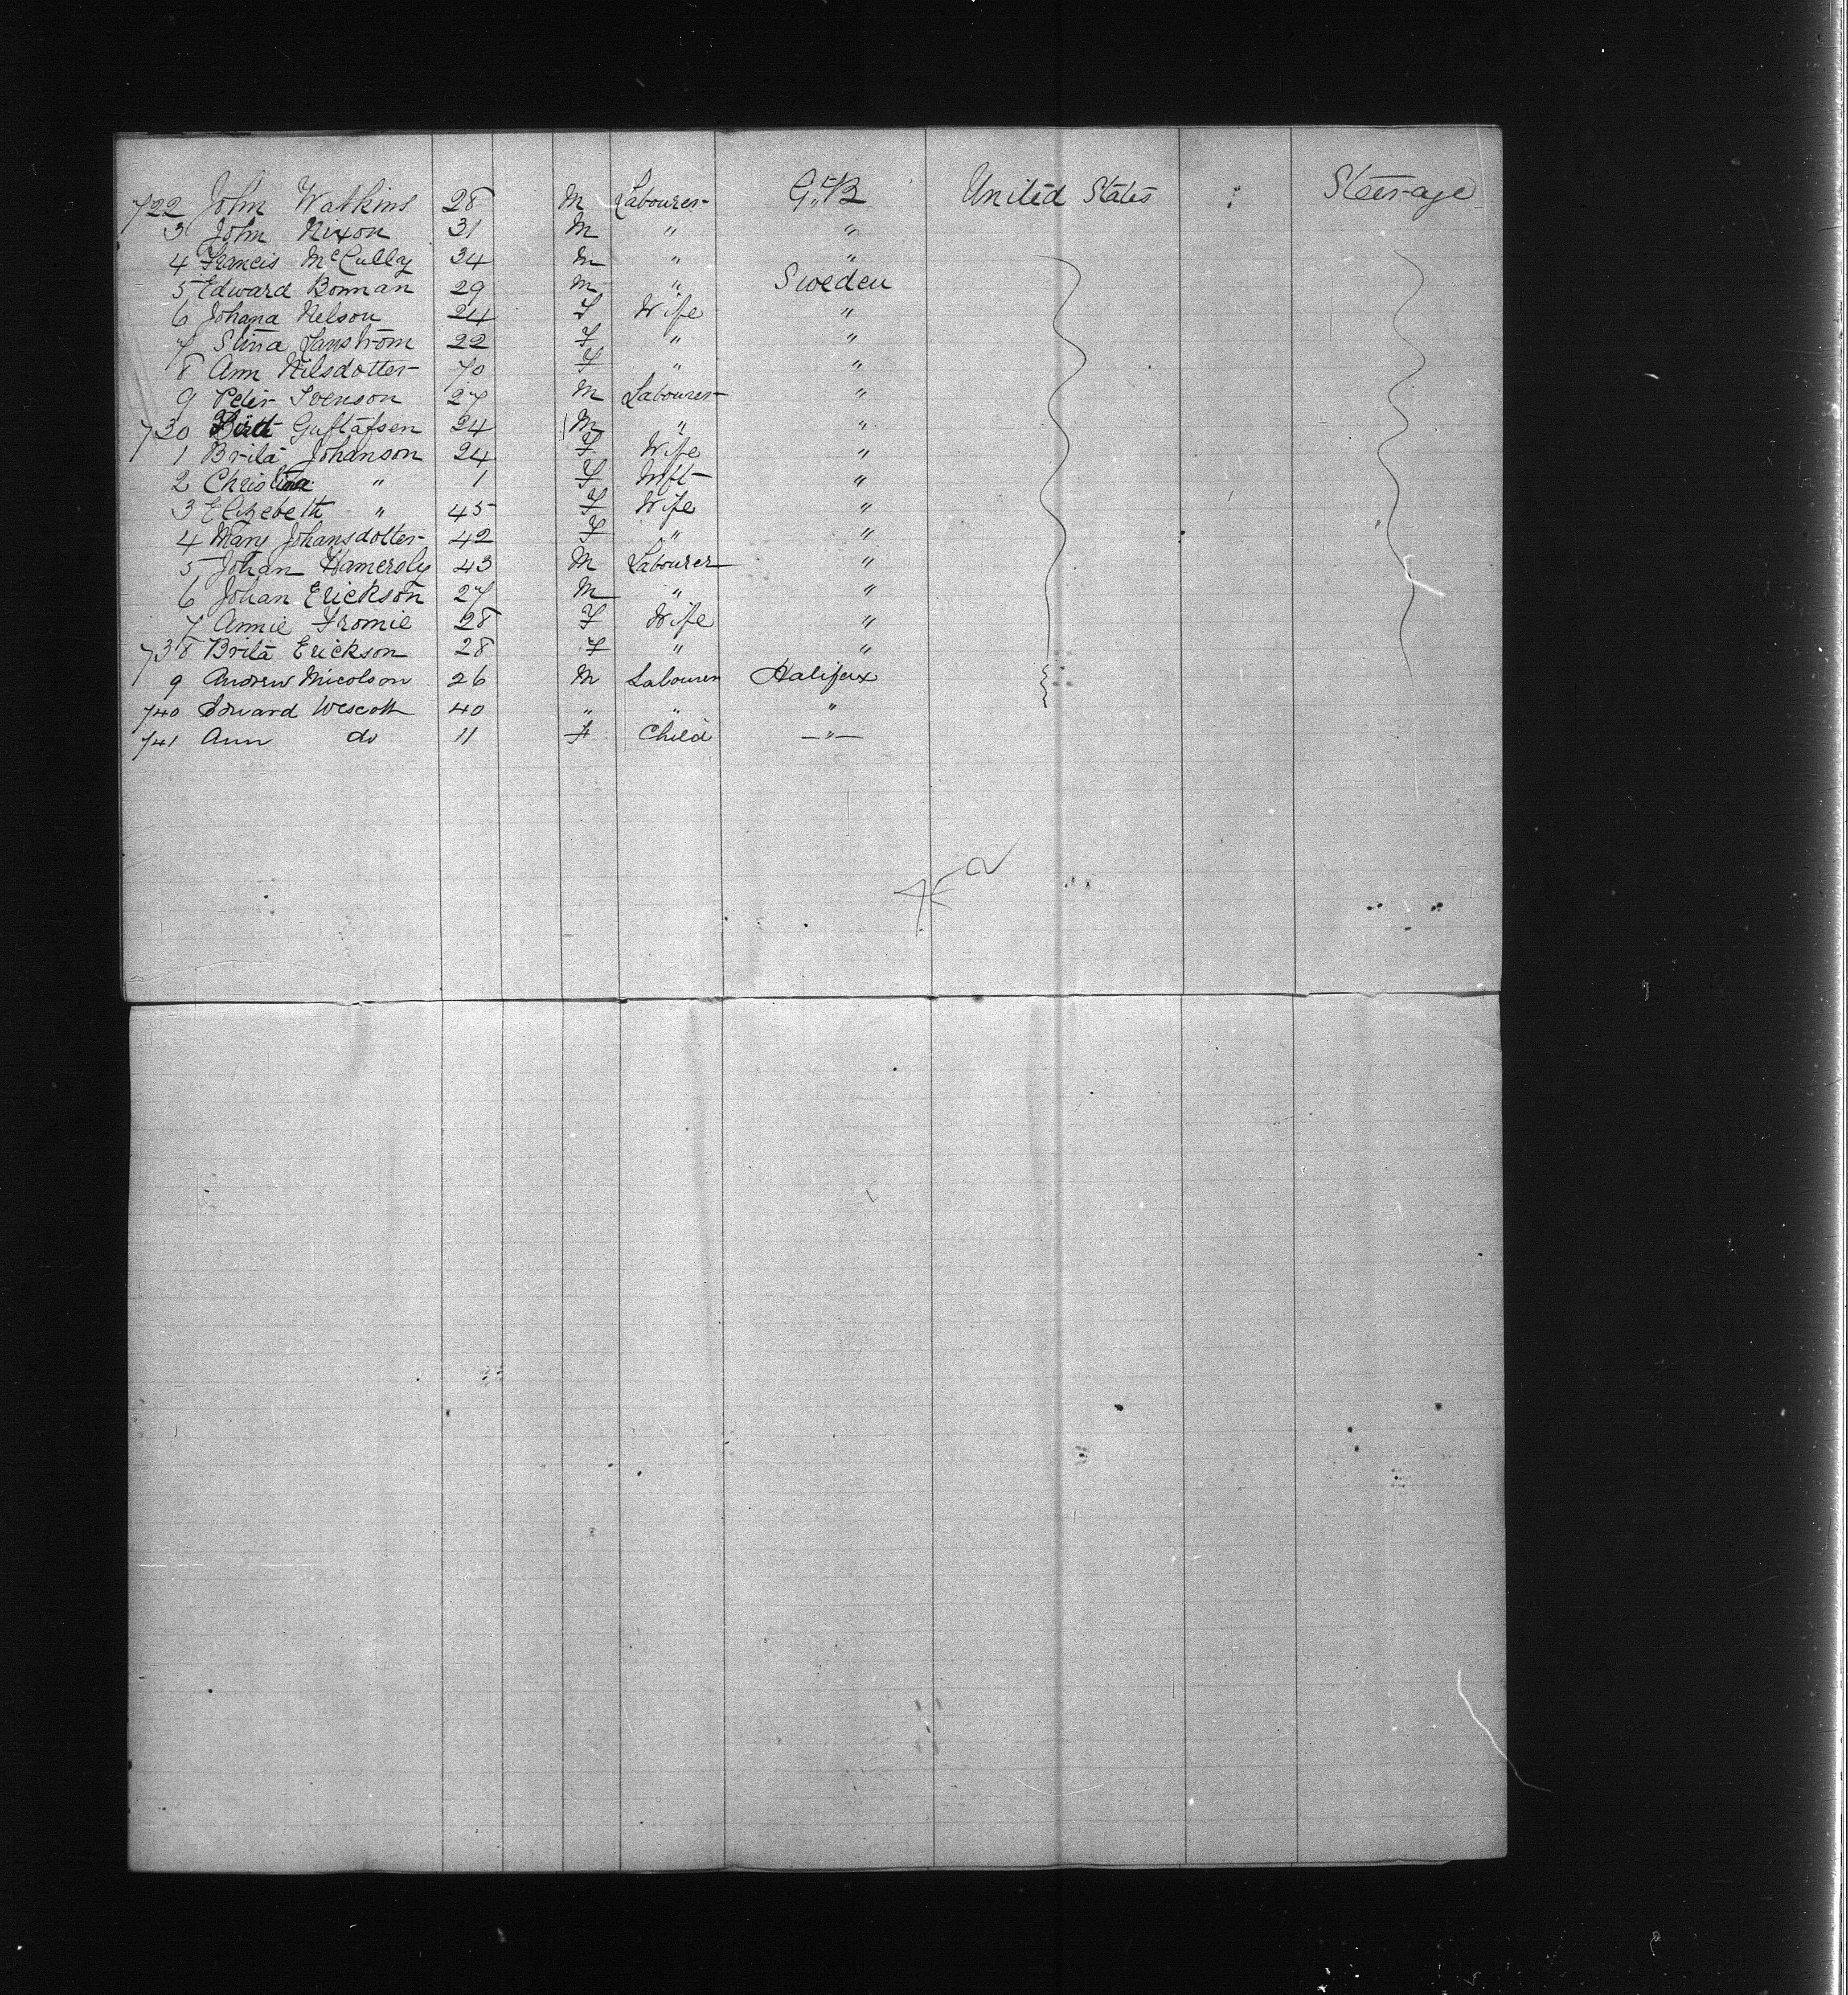 722 John Watkins 28 M Labourer G.B. United States " Steerage
3 John Nixon 31 M " "
4 Francis McCully 34 M " "
5 Edward Bonman 29 M " Sweden
6 Johana Nelson 24 F Wife "
7 Stina Lanstrom 22 F " "
8 Ann Nilsdotter 70 F " "
9 Peter Svenson 27 M Labourer "
730 Gustafsen 24 M " "
1 Brita Johanson 24 F Wife "
2 Christina " 1 F Inft "
3 Elizebeth " 45 F Wife "
4 Mary Johansdotter 42 F " "
5 Johan Hamersly 43 M Labourer "
6 Johan Erickson 27 M " "
7 Annie Fromie 28 F Wife "
738 Brita Erickson 28 F " "
9 Andrew Nicolson 26 M Labourer Halifax
740 Edward Wescott 40 " " "
741 Ann do 11 F Child "